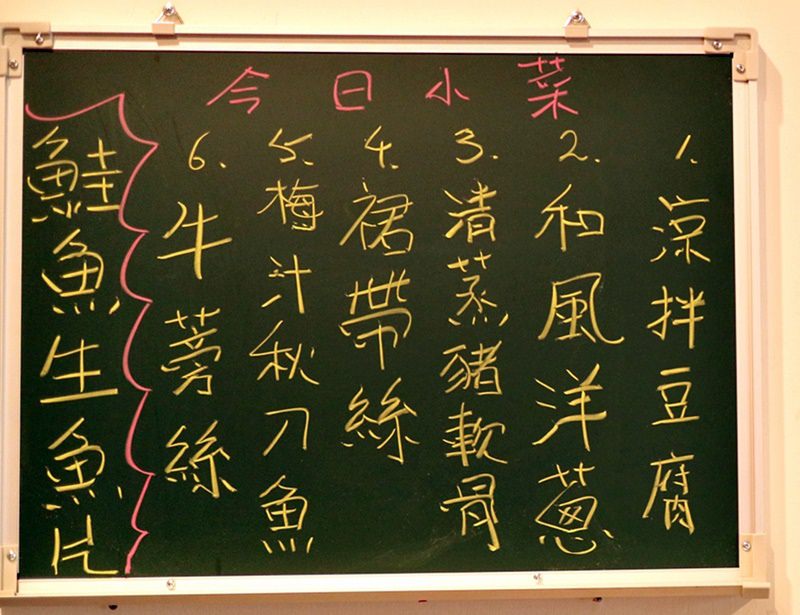 今日小菜
1. 涼拌豆腐
2. 和風洋蔥
3. 清蒸豬軟骨
4. 裙帶絲
5. 梅汁秋刀魚
6. 牛蒡絲
鮭魚生魚片